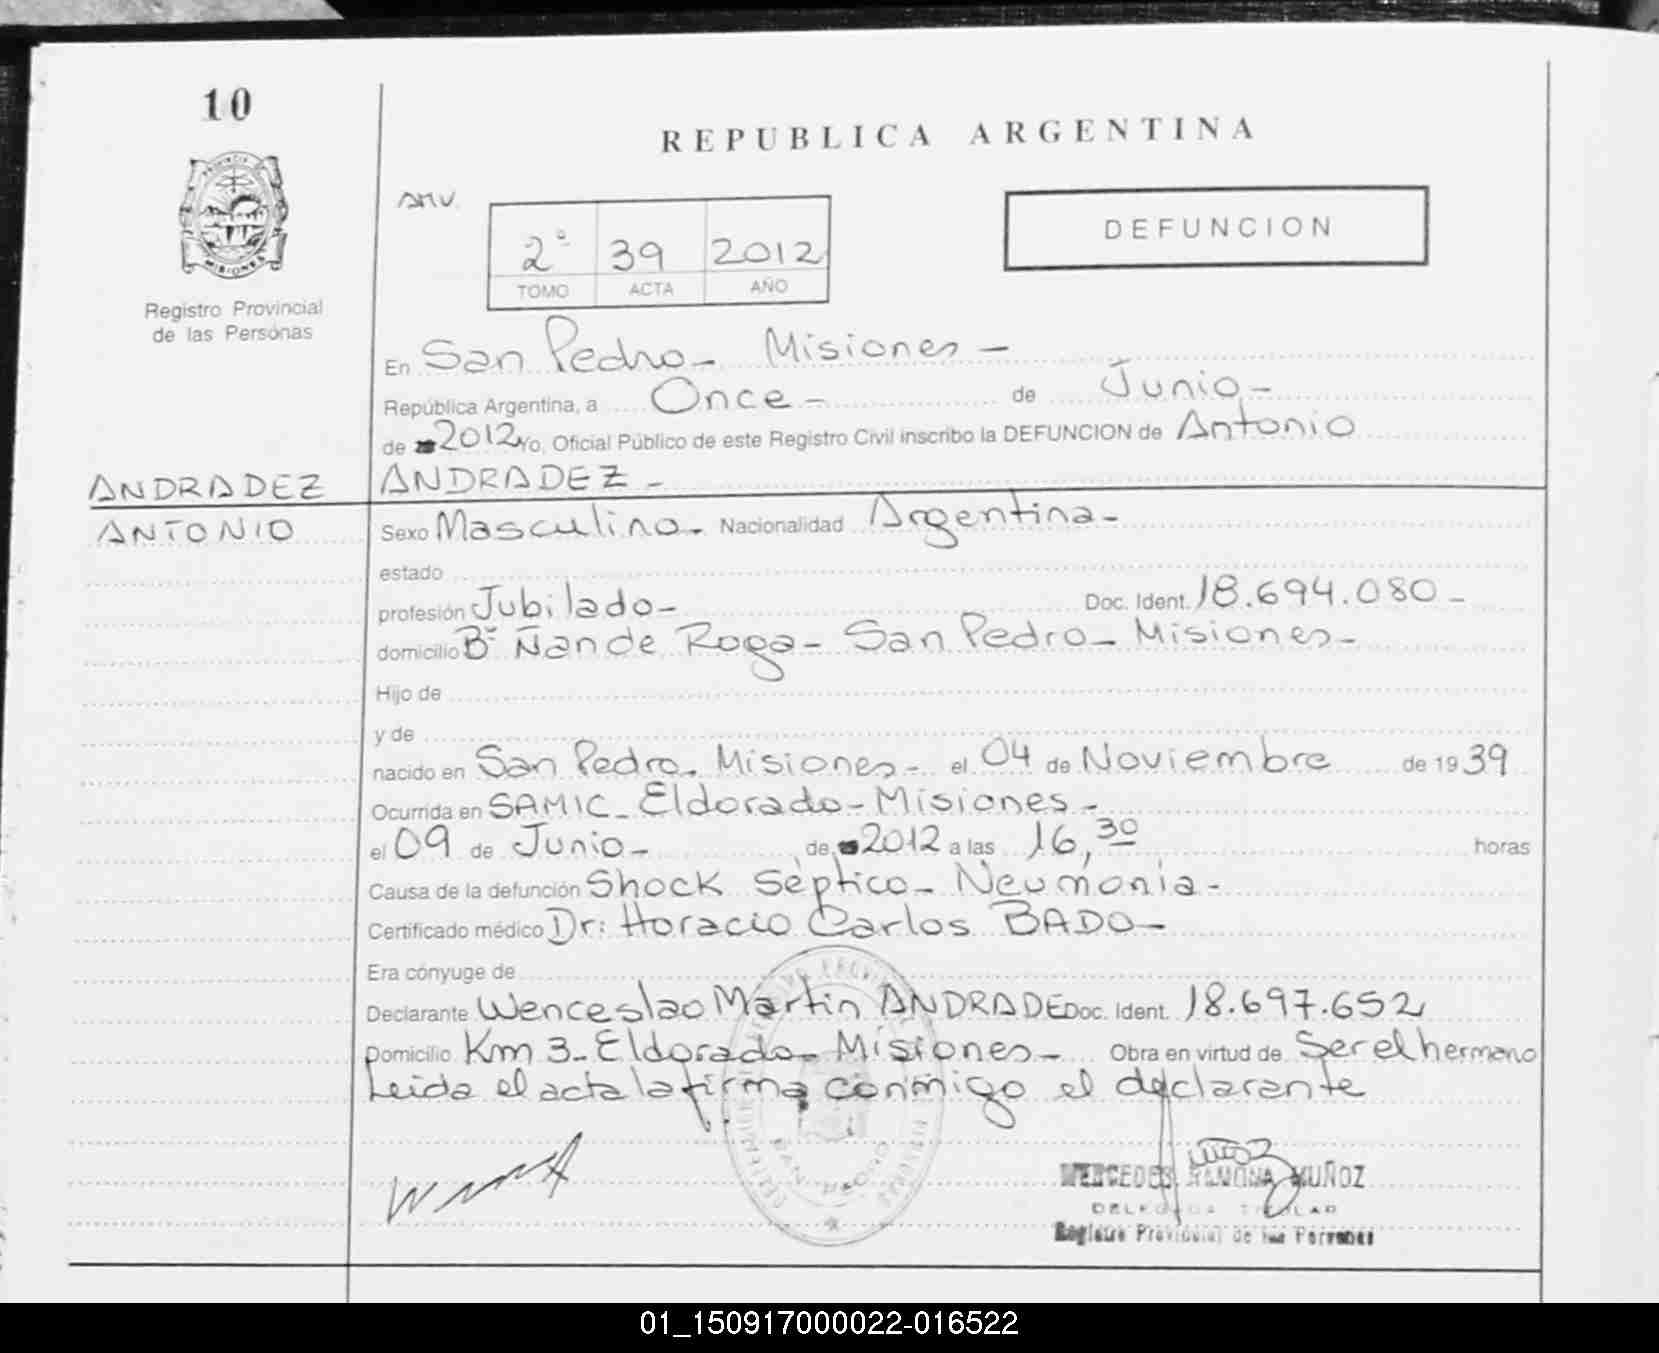 10
REPUBLICA ARGENTINA
PROVINCIA
MISIONES
Registro Provincial
de las Persónas
AMV.
2° 39 2012
TOMO ACTA AÑO
DEFUNCION
En San Pedro - Misiones -
República Argentina, a Once - de Junio -
de 2012 Yo, Oficial Público de este Registro Civil inscribo la DEFUNCION de Antonio
ANDRADEZ ANDRADEZ -
ANTONIO Sexo Masculino - Nacionalidad Argentina -
estado
profesión Jubilado - Doc. Ident. 18.694.080 -
domicilio B° Ñande Roga - San Pedro - Misiones -
Hijo de
y de
nacido en San Pedro - Misiones - el 04 de Noviembre de 19 39
Ocurrida en SAMIC - Eldorado - Misiones -
el 09 de Junio - de 2012 a las 16,30 horas
Causa de la defunción Shock Séptico - Neumonía -
Certificado médico Dr: Horacio Carlos BADO -
Era cónyuge de
Declarante Wenceslao Martin ANDRADE Doc. Ident. 18.697.652
Domicilio Km 3 - Eldorado - Misiones - Obra en virtud de Ser el hermano
Leida el acta la firma conmigo el declarante
SAN PEDRO
MERCEDES RAMONA MUÑOZ
DELEGADA TITULAR
Registro Provincial de las Personas
01_150917000022-016522